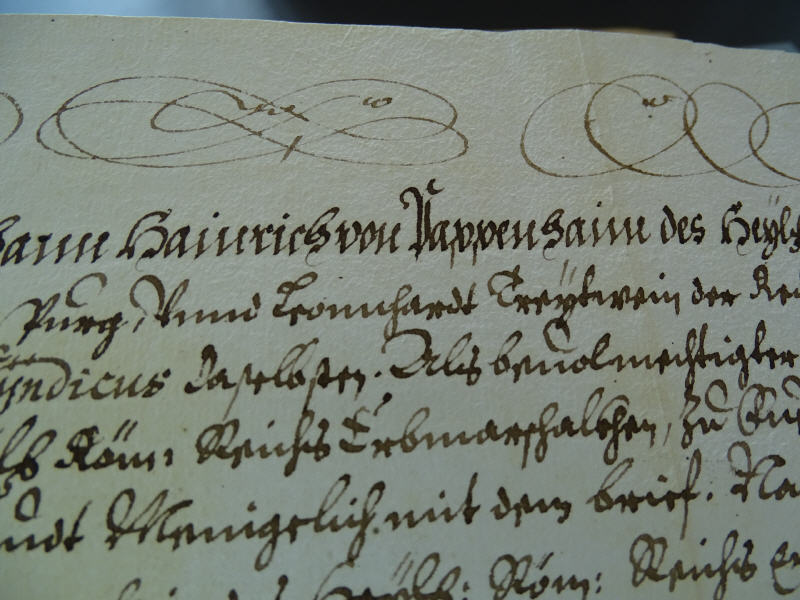 hann Hainrich von Pappenhaim des Heylg
Purg, Vnnd Leonnhardt Treytwein der Rec
Syndicus daselbsten. Als beuolmechtigter
Röm: Reichs Erbmarschalkhen, zu
undt Menigelich mit dem brief. Na
Heylg: Röm: Reichs Er